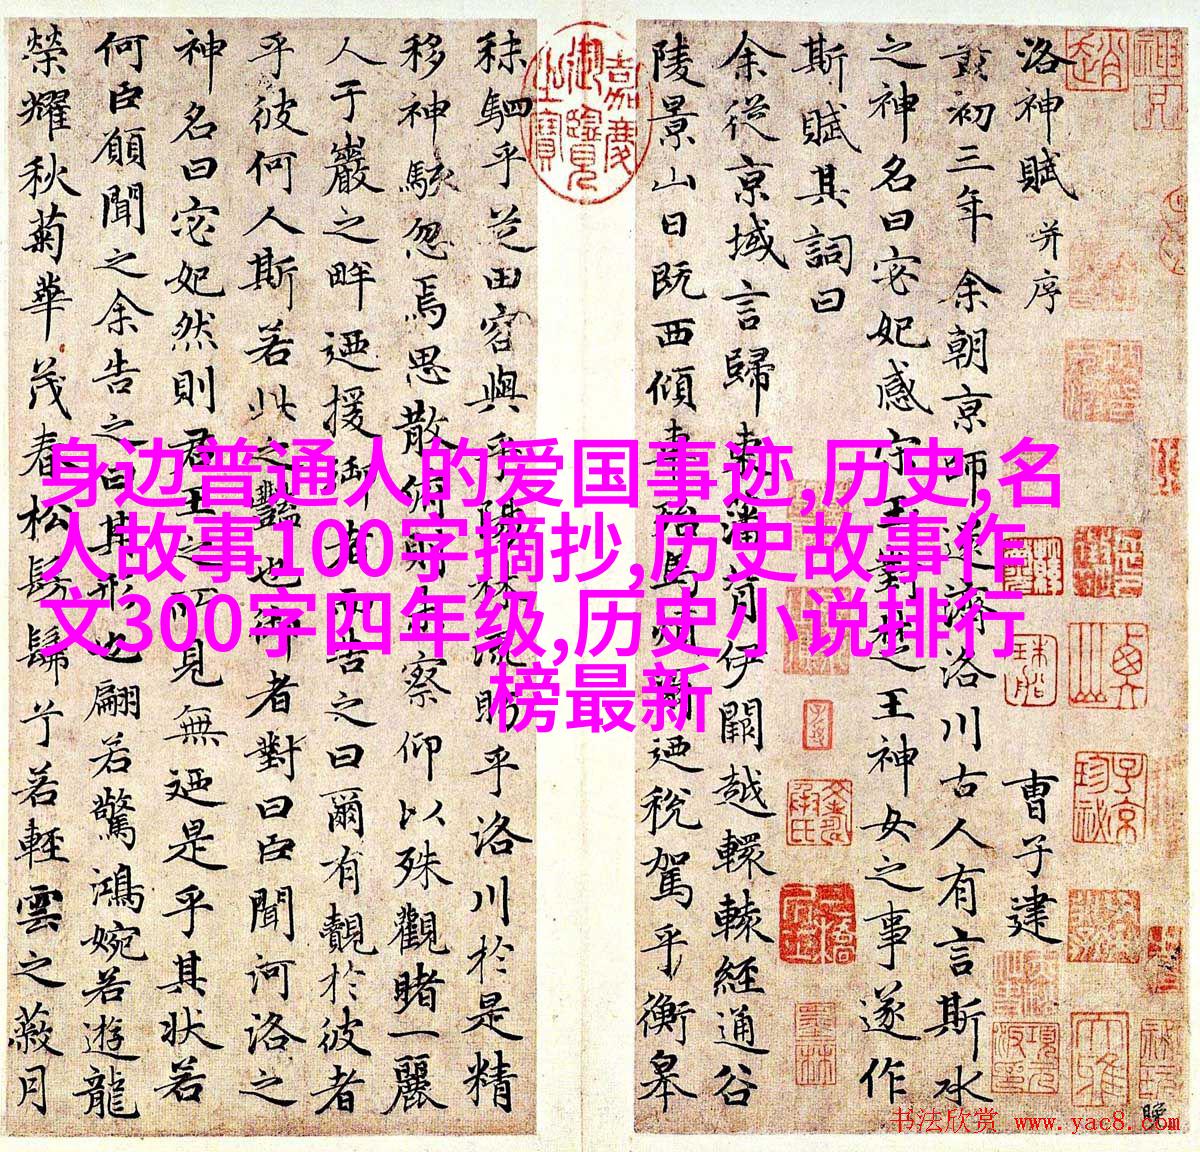 洛神賦 并序
曹子建
黃初三年余朝京師還濟洛川古人有言斯水
之神名曰宓妃感宋玉對楚王神女之事遂作
斯賦其詞曰
余從京域言歸東藩背伊闕越轘轅經通谷
陵景山日既西傾車殆馬煩爾迺稅駕乎蘅皋
秣駟乎芝田容與乎陽林流眄乎洛川於是精
移神駭忽焉思散俯則未察仰以殊觀睹一麗
人于巖之畔迺援御者而告之曰爾有覿於彼者
乎彼何人斯若此之豔也御者對曰臣聞河洛之
神名曰宓妃然則君王之所見無迺是乎其狀若
何臣願聞之余告之曰其形也翩若驚鴻婉若遊龍
榮耀秋菊華茂春松髣髴兮若輕雲之蔽月
嘉慶御覽之寶
身边普通人的爱国事迹,历史,名
人故事100字摘抄,历史故事作
文300字四年级,历史小说排行
榜最新
书法欣赏 www.yac8.com